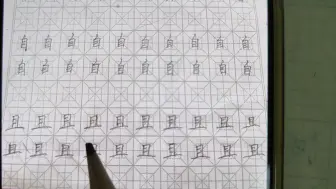 自自自自自自自自自自
自自自自自自自自自自
且且且且且且且且且且
且且且且且且且且且且